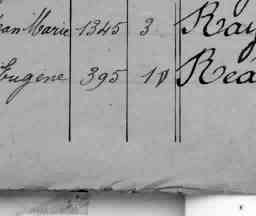 ean Marie 1345 3 Ray
Eugène 395 10 Réa